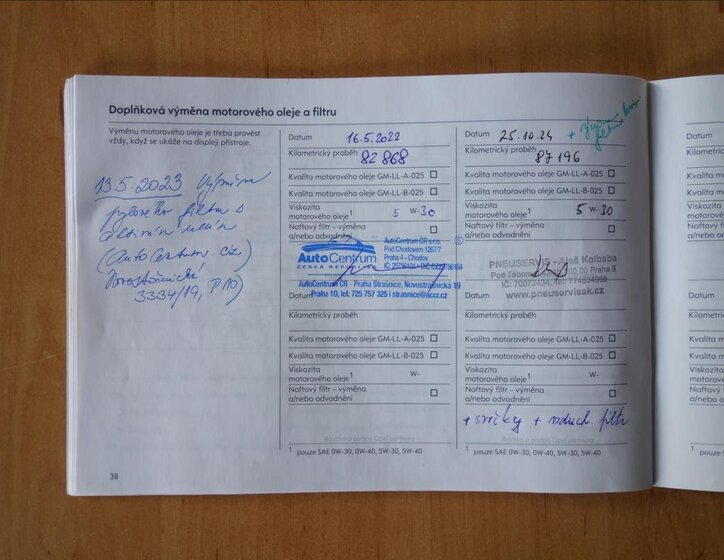 Doplňková výměna motorového oleje a filtru
Výměnu motorového oleje je třeba provést
vždy, když se ukáže na displeji přístroje.
13.5.2023 Výměna
pylového filtru s
aktivním uhlím
(AutoCentrum CZ)
Novostrašnická
3334/19, P10)
Datum 16.5.2022
Kilometrický průběh 82 868
Kvalita motorového oleje GM-LL-A-025
Kvalita motorového oleje GM-LL-B-025
Viskozita
motorového oleje1 5 W-30
Naftový filtr – výměna
a/nebo odvodnění
AutoCentrum
ČESKÁ REPUBLIKA
AutoCentrum ČR s.r.o.
Pod Chodovem 1267/7
Praha 4 - Chodov
AutoCentrum ČR - Praha Strašnice, Novostrašnická 19
Praha 10, tel: 725 757 325 | strasnice@accr.cz
Datum
Kilometrický průběh
Kvalita motorového oleje GM-LL-A-025
Kvalita motorového oleje GM-LL-B-025
Viskozita
motorového oleje1 W-
Naftový filtr – výměna
a/nebo odvodnění
Razítko a podpis Opel partnera
1 pouze SAE 0W-30, 0W-40, 5W-30, 5W-40
Datum 25.10.24 +
Kilometrický průběh 87 196
Kvalita motorového oleje GM-LL-A-025
Kvalita motorového oleje GM-LL-B-025
Viskozita
motorového oleje1 5 W-30
Naftový filtr – výměna
a/nebo odvodnění
PNEUSERVIS - Aleš Kolbaba
Pod Táborem 00 00 Praha 9
IČ: 70072434, Tel: 774634968
www.pneuservisak.cz
Kilometrický průběh
Kvalita motorového oleje GM-LL-A-025
Kvalita motorového oleje GM-LL-B-025
Viskozita
motorového oleje1 W-
Naftový filtr – výměna
a/nebo odvodnění
+ svíčky + vzduch. filtr
Razítko a podpis Opel partnera
1 pouze SAE 0W-30, 0W-40, 5W-30, 5W-40
38